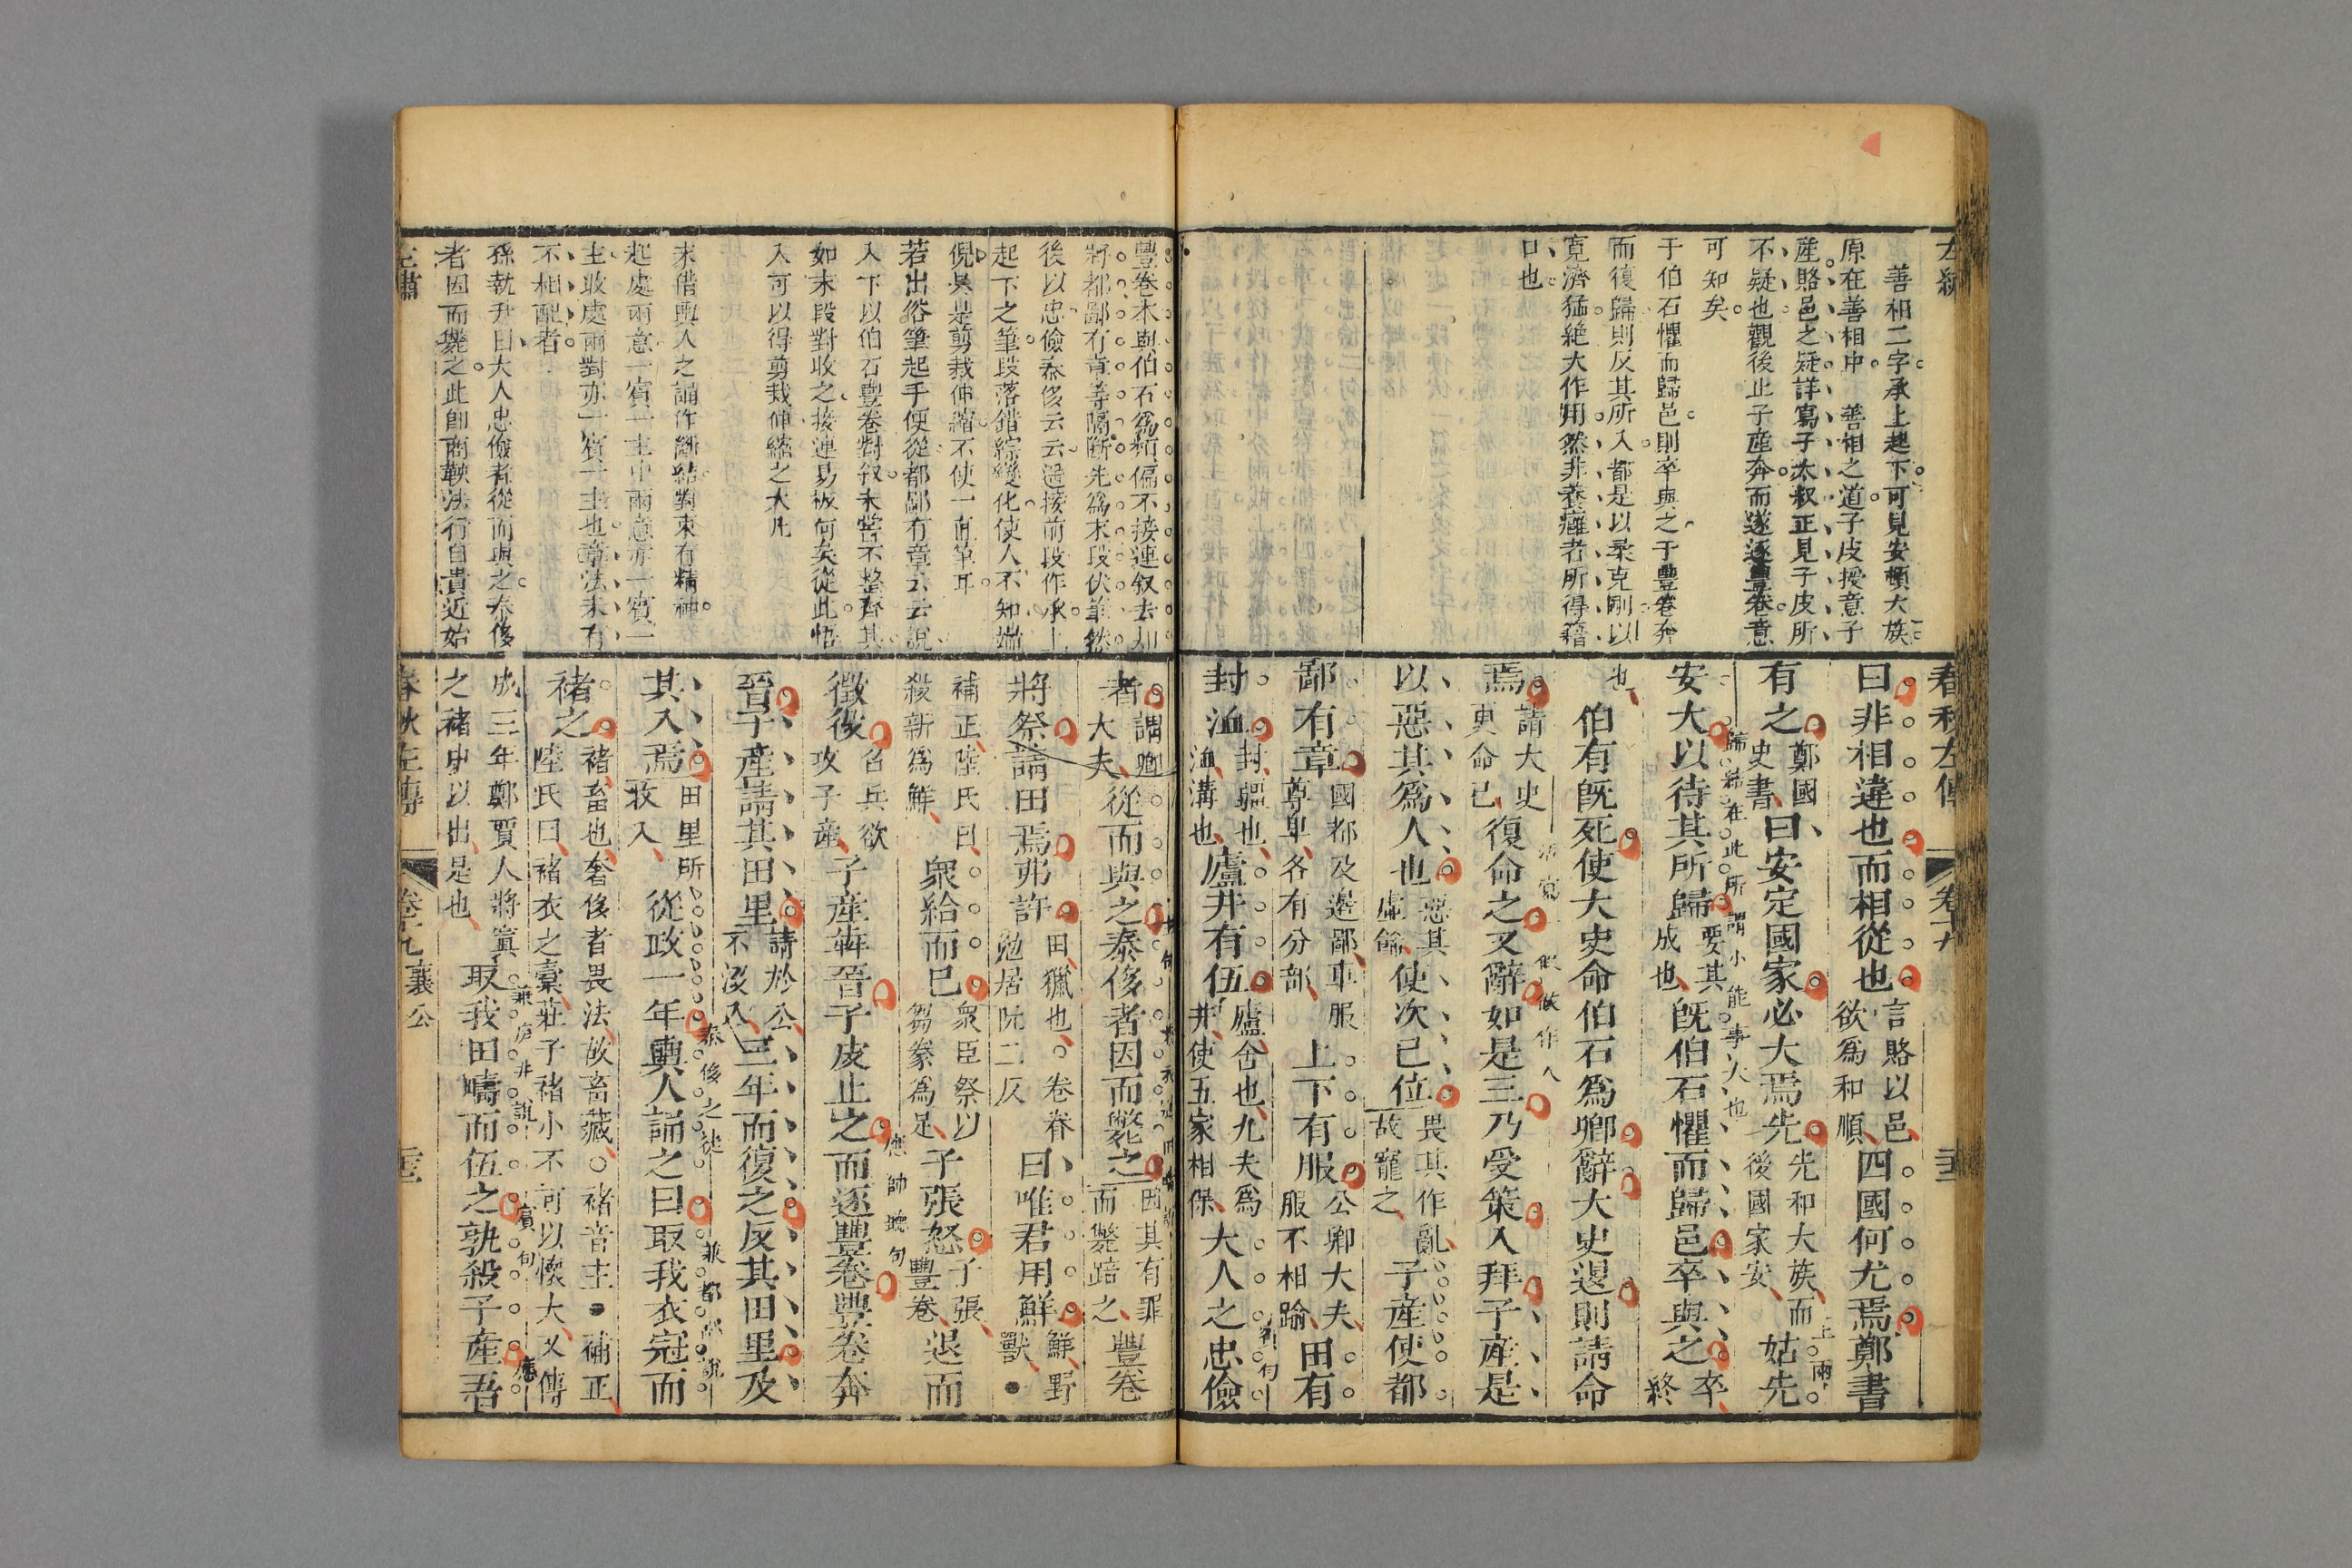 善相二字承上起下可見安頓大族
原在善相中　善相之道子皮授意子
產賂邑之疑詳寫子太叔正見子皮所
不疑也觀後止子產奔而遂逐豐卷意
可知矣
于伯石懼而歸邑則卒與之于豐卷奔
而復歸則反其所入都是以柔克剛以
寬濟猛絶大作用然非養癰者所得藉
口也
春秋左傳　卷十九
曰非相違也而相從也言賂以邑欲爲和順四國何尤焉鄭書
有之鄭國史書曰安定國家必大焉先先和大族而後國家安姑先
安大以待其所歸要其成也既伯石懼而歸邑卒與之卒終
歸結在此所謂小能事大也
也
伯有既死使大史命伯石爲卿辭大史退則請命
焉請大史更命已復命之又辭如是三乃受策入拜子產是
以惡其爲人也惡其虛飾使次己位畏其作亂故寵之子產使都
鄙有章國都及邊鄙車服尊卑各有分部上下有服公卿大夫服不相踰田有
封洫封疆也洫溝也廬井有伍廬舍也九夫爲井使五家相保大人之忠儉
豐卷本與伯石爲類偏不接連叙去却
將都鄙有章等隔斷先爲末段伏筆然
後以忠儉泰侈云云遥接前段作承上
起下之筆段落錯綜變化使人不知端
倪具是剪裁伸縮不使一直筆耳
若出俗筆起手便從都鄙有章云云說
入下以伯石豐卷對叙未嘗不整齊其
如末段對收之接連易板何矣從此悟
入可以得剪裁伸縮之大凡
末借輿人之誦作斷結對束有精神
起處兩意一賓一主中兩意亦一賓一
主收處兩對亦一賓一主也章法未有
不相配者
孫執升曰大人忠儉者從而與之泰侈
者因而斃之此卽商鞅法行自貴近始
者謂卿大夫從而與之泰侈者因而斃之因其有罪而斃踣之豐卷
將祭請田焉弗許田獵也○卷眷勉居阮二反曰唯君用鮮鮮野獸●
補正陸氏曰殺新爲鮮衆給而已衆臣祭以芻豢爲足子張怒子張豐卷退而
徵役召兵欲攻子產子產奔晉子皮止之而逐豐卷豐卷奔
晉子產請其田里請於公不沒入三年而復之反其田里及
其入焉田里所收入從政一年輿人誦之曰取我衣冠而
褚之褚畜也奢侈者畏法故畜藏○褚音主●補正陸氏曰褚衣之橐莊子褚小不可以懷大又傳
成三年鄭賈人將寘之褚中以出是也取我田疇而伍之孰殺子產吾
春秋左傳　卷十九　襄公